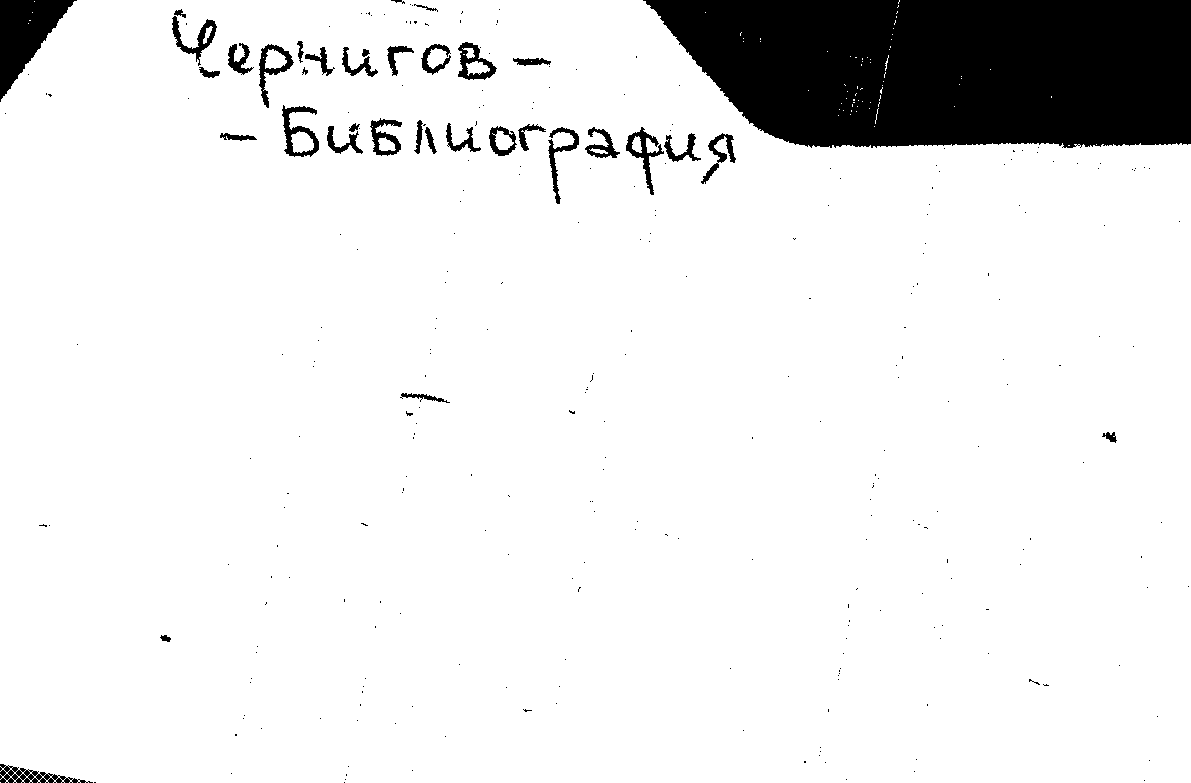 Чернигов –
– Библиография